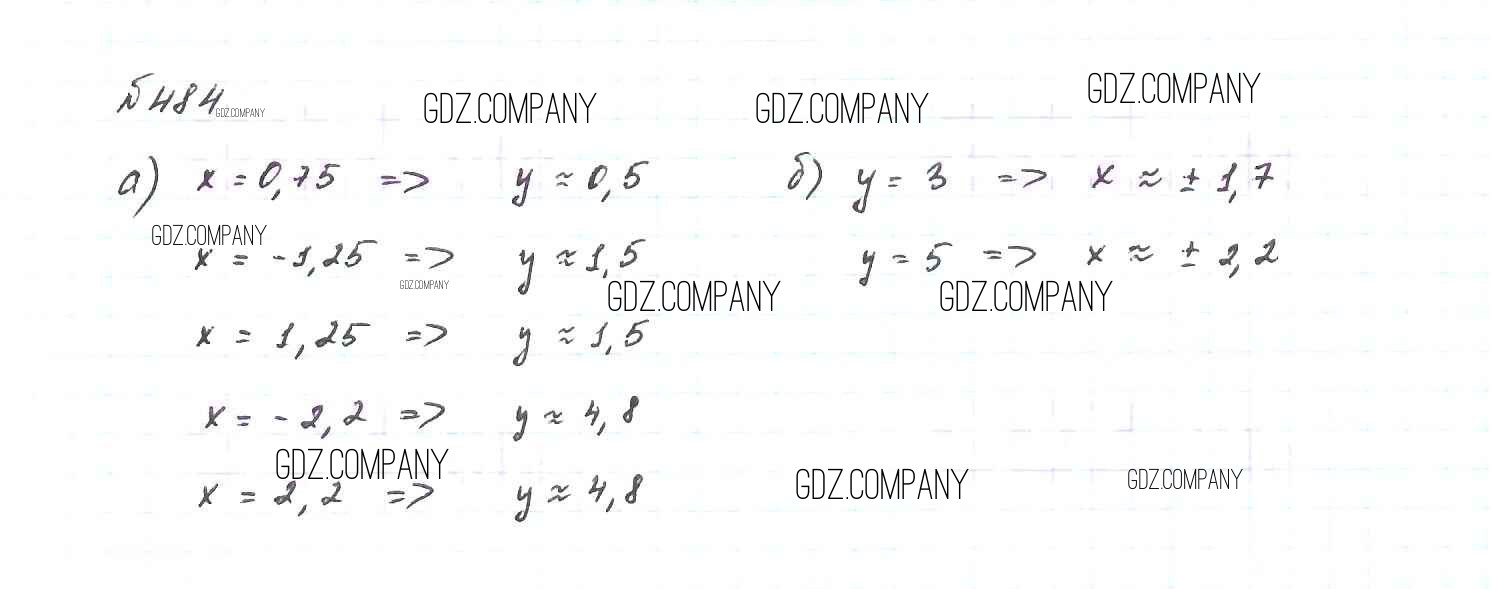 №484 GDZ.COMPANY GDZ.COMPANY GDZ.COMPANY GDZ.COMPANY
а) x = 0,75 => y ≈ 0,5 б) y = 3 => x ≈ ± 1,7
GDZ.COMPANY
x = -1,25 => y ≈ 1,5 y = 5 => x ≈ ± 2,2
GDZ.COMPANY GDZ.COMPANY GDZ.COMPANY
x = 1,25 => y ≈ 1,5
x = -2,2 => y ≈ 4,8
GDZ.COMPANY GDZ.COMPANY GDZ.COMPANY
x = 2,2 => y ≈ 4,8